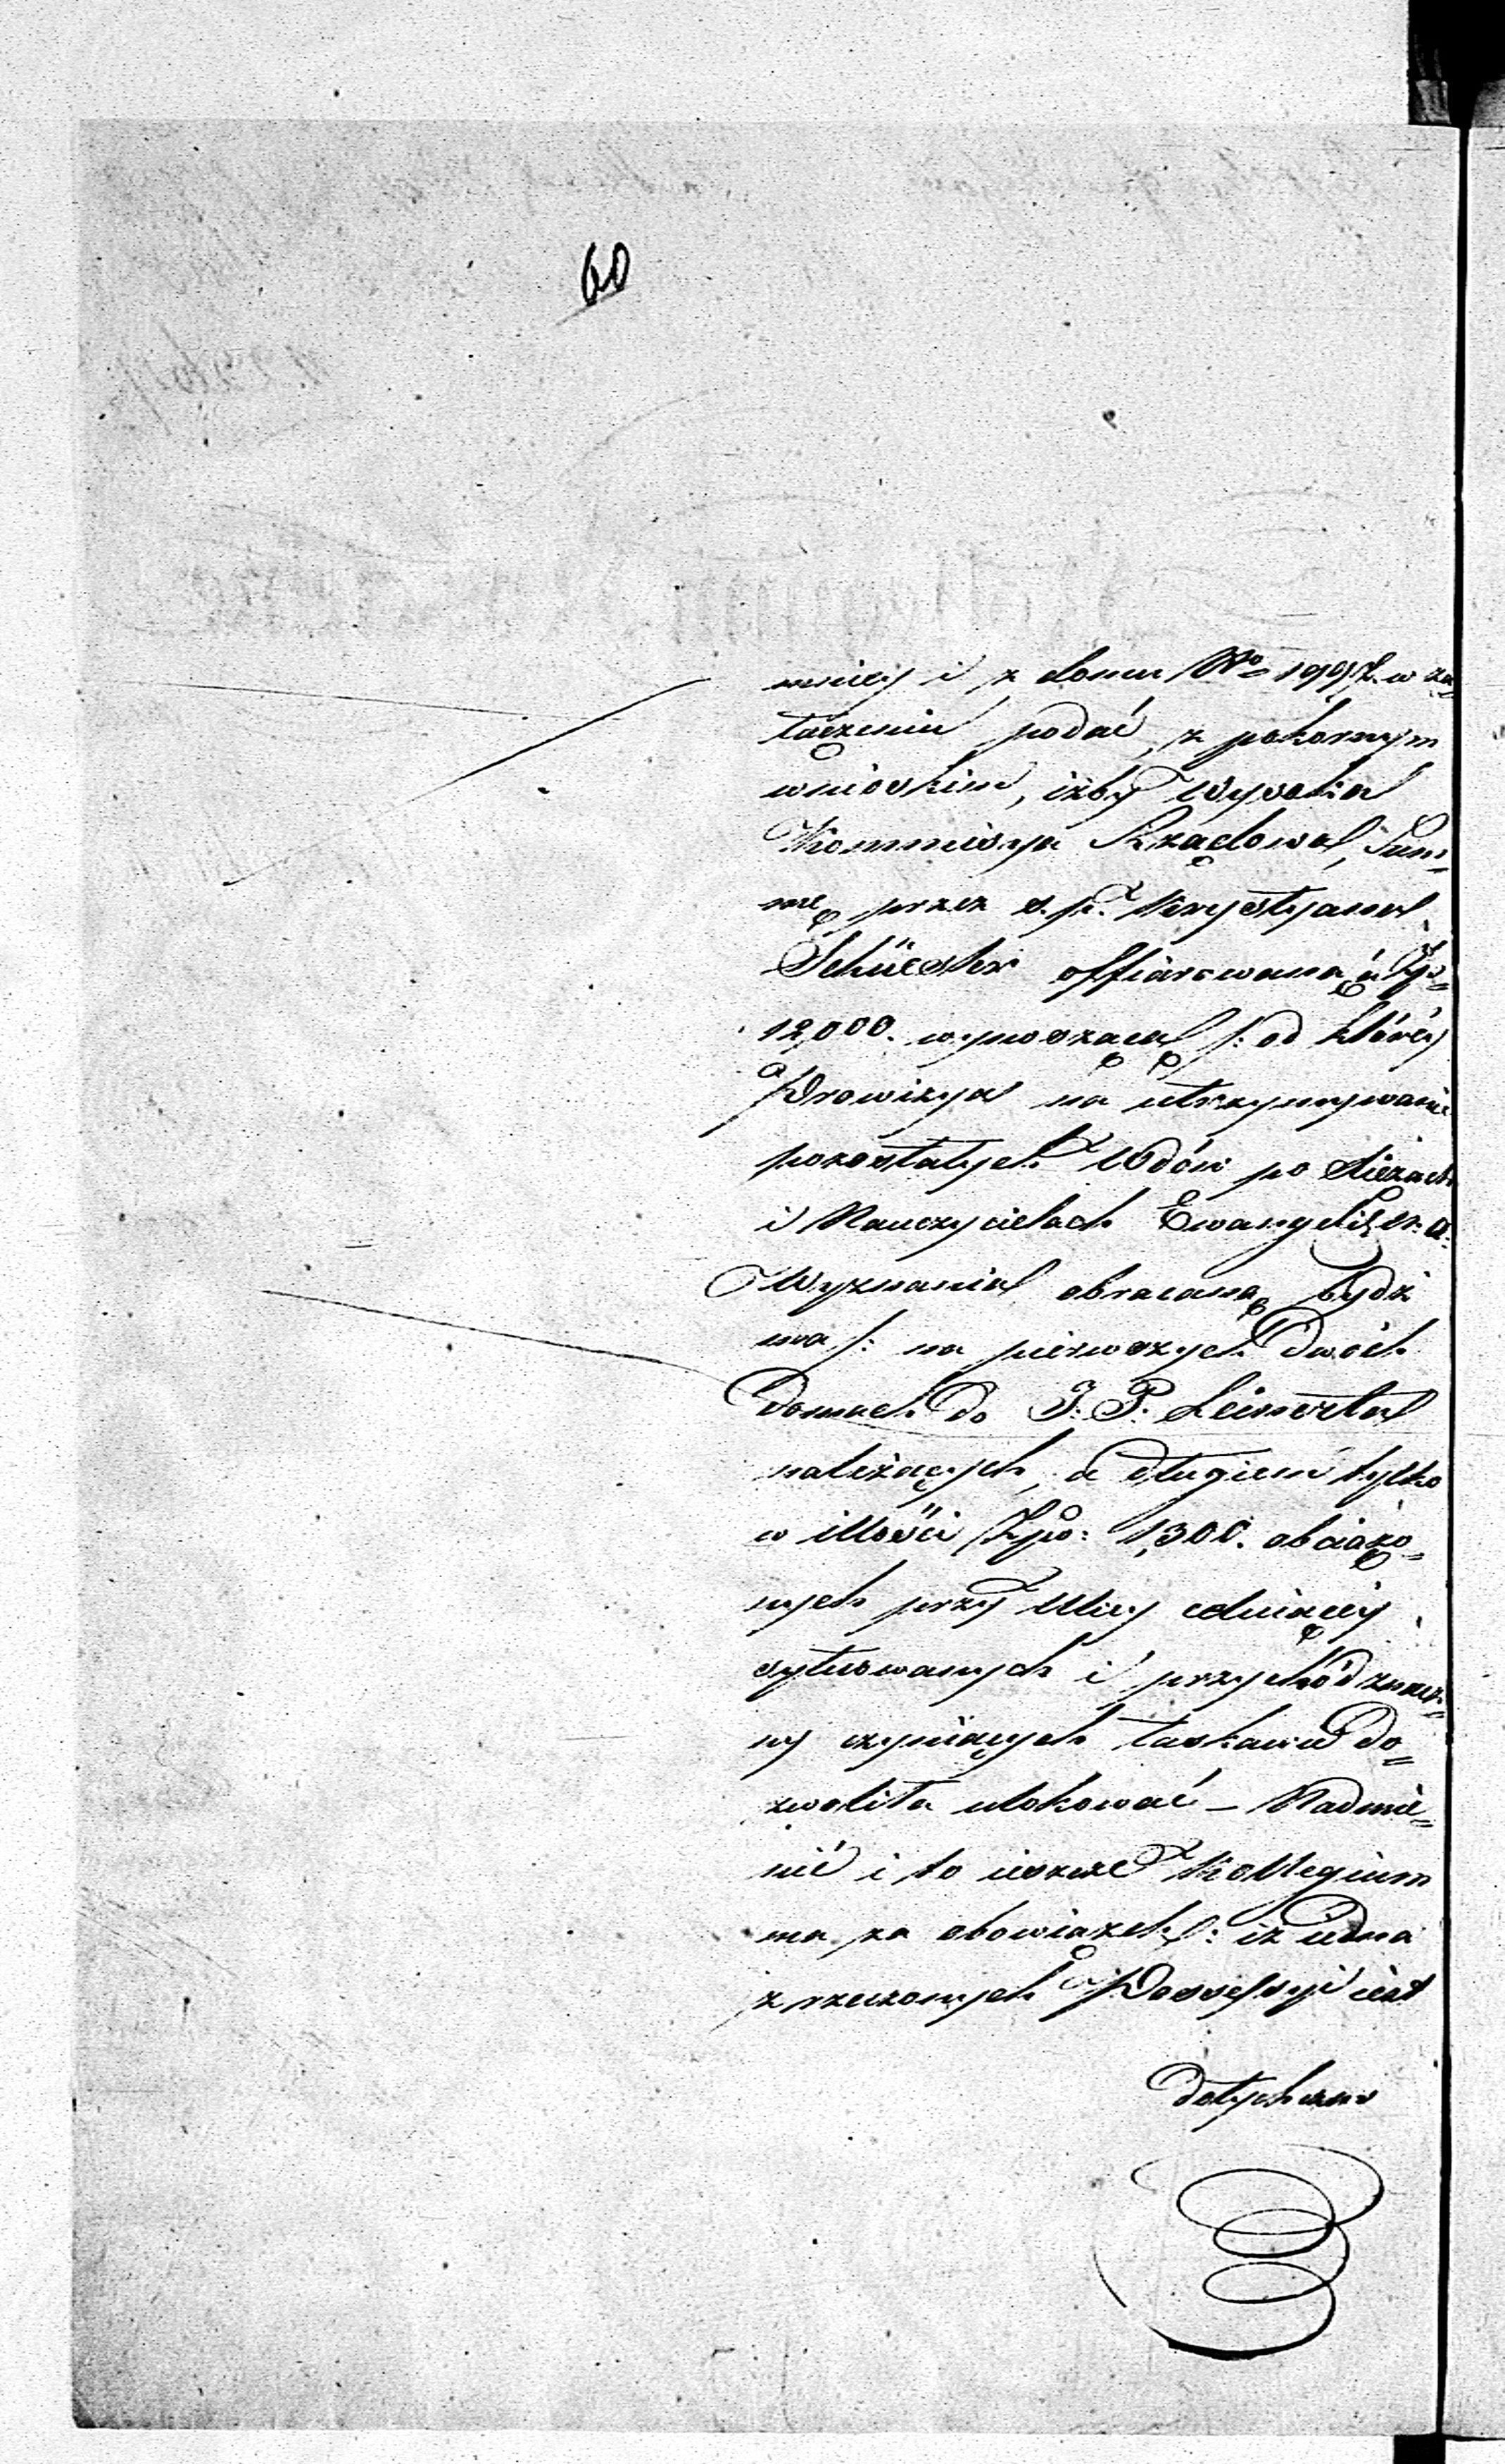 60
mniey i z domu No 1997. w za=
łączeniu podać, z pokornym
wnioskiem, iżby Wysoka
Kommissya Rządowa, Sum=
mę przez s. p. Krystyana
Schüester offiarowaną a Zło=
12,000. wynoszącą /: od któréy
Prowizya na utrzymywanie
pozostałych Wdów po Xiężach
i Nauczycielach Ewangelis: A:
Wyznania obracaną bydź
ma /: na pierwszych Dwóch
Domach do J: P: Leinverta
należących, a długiem tylko
w illości Złpo: 1,300. obciążo=
nych przy Ulicy
sytuowanych i przychód znacz=
ny czyniących łaskawie do=
zwoliła ulokować – Nadmie=
nić i to ieszcze Kollegium
ma za obowiązek /: iż iedna
z rzeczonych Possessyi iest
dotychczas